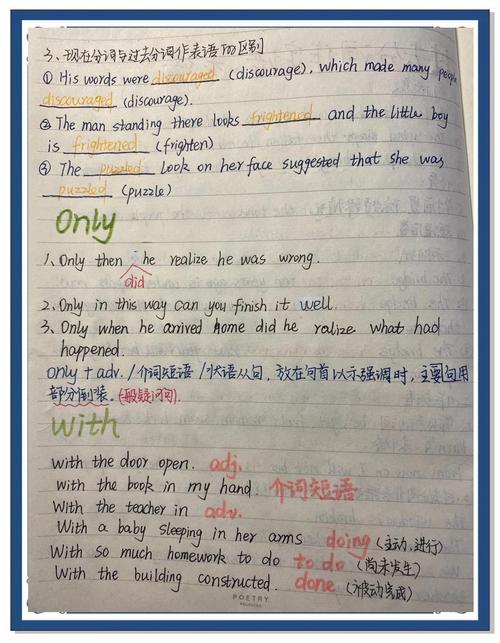 3、现在分词与过去分词作表语的区别
① His words were discouraged (discourage), which made many people
discouraged (discourage).
② The man standing there looks frightened and the little boy
is frightened (frighten)
③ The puzzled look on her face suggested that she was
puzzled (puzzle)
Only
1、Only then he realize he was wrong.
did
2、Only in this way can you finish it well.
3、Only when he arrived home did he realize what had
happened.
only + adv. /介词短语 /状语从句, 放在句首以示强调时, 主要句用
部分倒装。(一般疑问句)
with
with the door open. adj.
with the book in my hand. 介词短语
with the teacher in adv.
With a baby sleeping in her arms doing (主动、进行)
With so much homework to do to do (尚未发生)
With the building constructed. done (被动完成)
POETRY